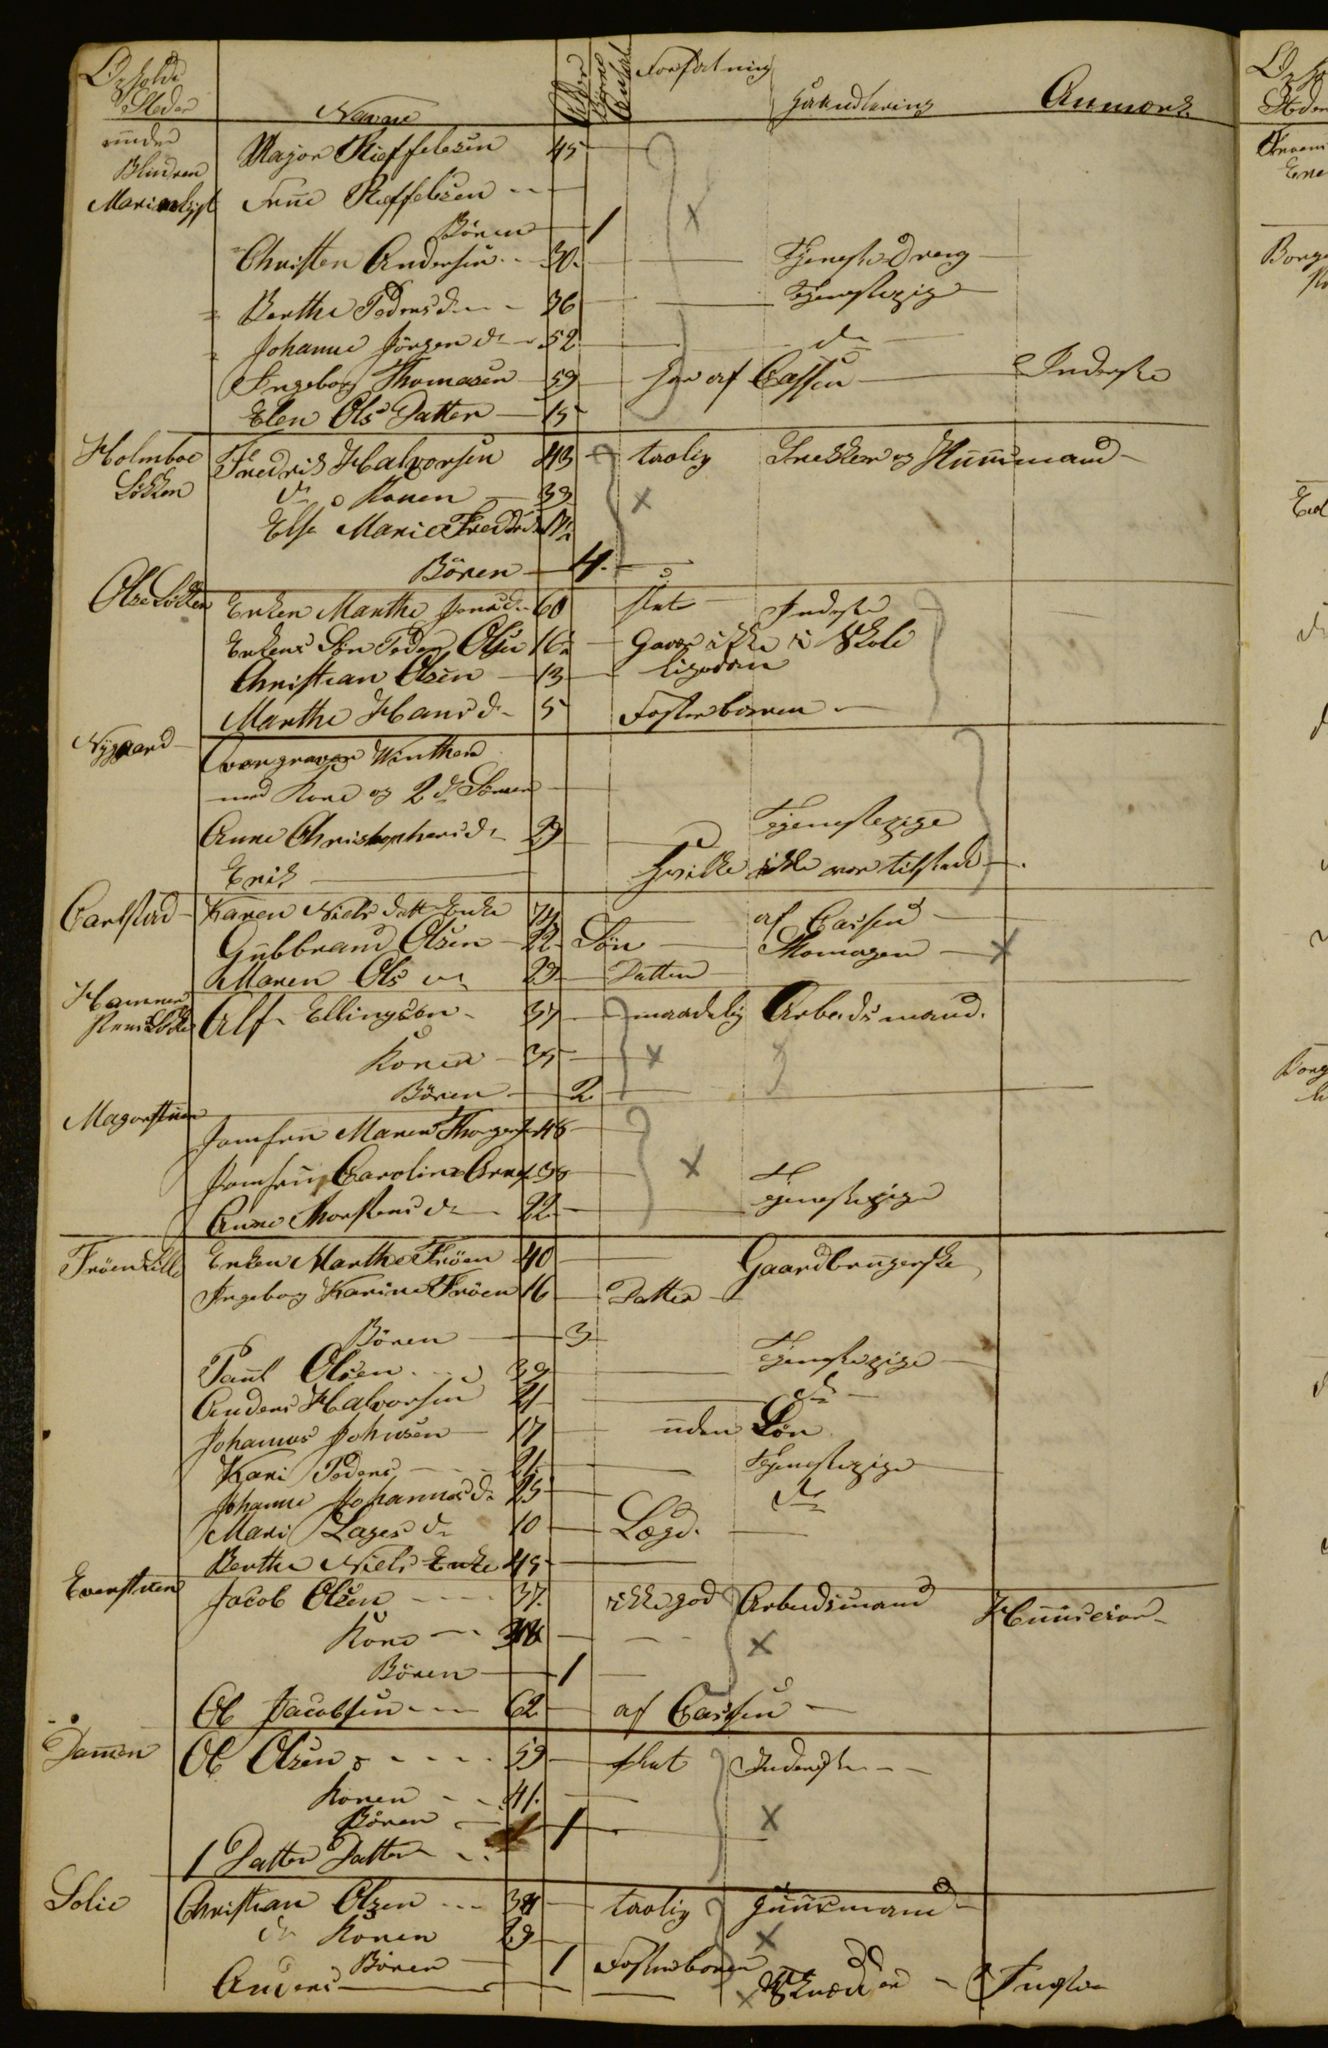 Opholds Steder Navne Alder Börnes Antal Forfatning Haandtering Anmærk.
under
Blindern
Marienlyst Major Rieffelesen 45
Frue Rieffelesen
Börn 1
Christen Andersen 30. TjenesteDreng
Berthe Pedersd. 36 Tjenestepige
Johanne Jörgensd. 52 do
Ingeborg Thomasen 59 har af Cassen Inderste
Elen Ols Datter 15
Holmboe Fredrik Halvorsen 43 taalig Snekker og Huusmand
Løkken do Konen 33
Else Marie Fredrikd
Börn 4.
Olse Løkken Enken Marthe Jonsd. 60 slet Inderste
Enkens Søn Peder Olsen 16 Gaaer ikke i Skole
Christian Olsen 13 ligedan
Marthe Hansd. 5 Fosterbarn
Nygaard Overgraver Winther
med Kone og 2de Sønner
Anne Christophersd. 29 Tjenestepige
Erik hvilke ikke var tilstæde
Carlstad Karen Niels datt Enke 74 af Cassen
Gulbrand Olsen 22 Søn Skomager
Maren Ols do 29 Datter
Hammer
Alf Ellingsøn 37 maadelig Arbeidsmand.
Konen 35
Börn 2
Magorstuen Jomfru Maren Thorgers 48
Jomfru Caroline 38
Anne Thorstensd. 22 Tjenestepige
Fröen Lille Enken Marthe Fröen 40 Gaardbrugerske
Ingeborg Karine Fröen 16 Datter
Börn 3
Paul Olsen 39 Tjenestepige
Anders Halvorsen 21 do
Johannes Johnsen 17 uden Løn
Kari Peders 21. Tjenestepige
Johanne Johannesd. 25 do
Mari Lagesd. 10 Lægd.
Berthe Niels Enke 45
Evenstuen Jacob Olsen 37. ikke god Arbeidsmand Huuseier
Kone 38
Börn 1
Ole Jacobsen 62 af Cassen
Dammen Ole Olsen 59 slet Inderste
Konen 41.
Börn 1
1 Datter Datter
Solie Christian Olsen 38 taalig Huusmand
do Konen 29
Börn 1 Fosterbarn
Anders Skrædder Inderste